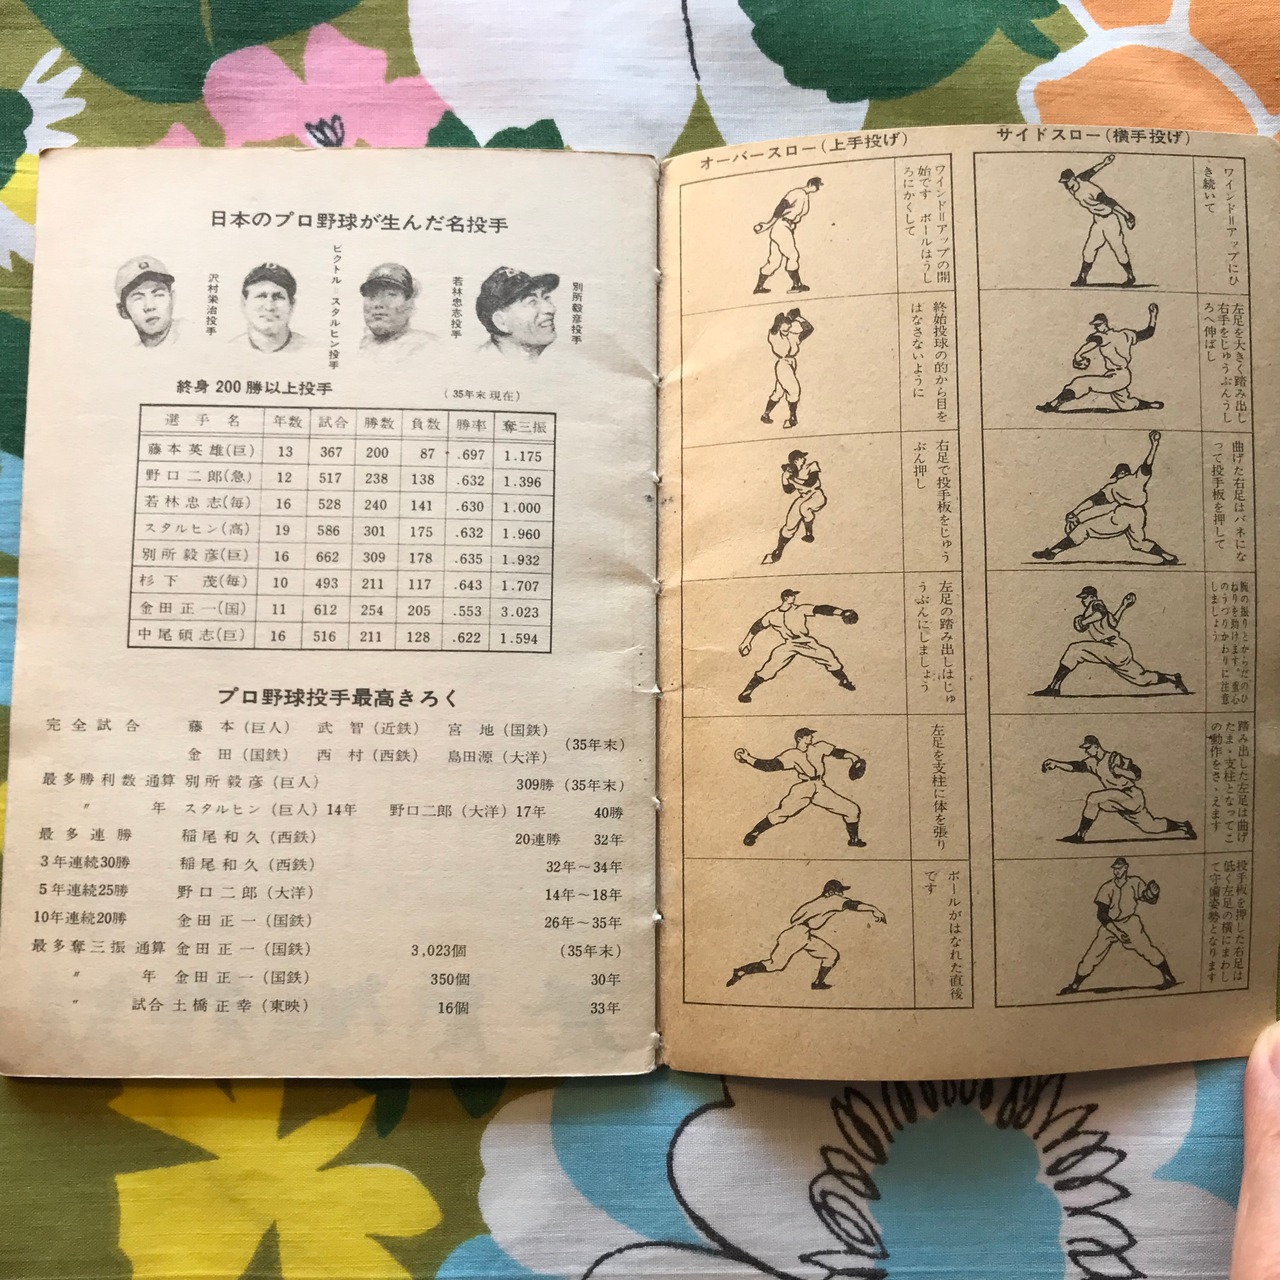 日本のプロ野球が生んだ名投手
沢村栄治投手
ビクトル=スタルヒン投手
若林忠志投手
別所毅彦投手
終身200勝以上投手
(35年末現在)
選手名 年数 試合 勝数 負数 勝率 奪三振
藤本英雄(巨) 13 367 200 87 .697 1.175
野口二郎(急) 12 517 238 138 .632 1.396
若林忠志(毎) 16 528 240 141 .630 1.000
スタルヒン(高) 19 586 301 175 .632 1.960
別所毅彦(巨) 16 662 309 178 .635 1.932
杉下 茂(毎) 10 493 211 117 .643 1.707
金田正一(国) 11 612 254 205 .553 3.023
中尾碩志(巨) 16 516 211 128 .622 1.594
プロ野球投手最高きろく
完全試合 藤本(巨人) 武智(近鉄) 宮地(国鉄)
金田(国鉄) 西村(西鉄) 島田源(大洋) (35年末)
最多勝利数 通算 別所毅彦(巨人) 309勝 (35年末)
〃 年 スタルヒン(巨人)14年 野口二郎(大洋)17年 40勝
最多連勝 稲尾和久(西鉄) 20連勝 32年
3年連続30勝 稲尾和久(西鉄) 32年〜34年
5年連続25勝 野口二郎(大洋) 14年〜18年
10年連続20勝 金田正一(国鉄) 26年〜35年
最多奪三振 通算 金田正一(国鉄) 3,023個 (35年末)
〃 年 金田正一(国鉄) 350個 30年
〃 試合 土橋正幸(東映) 16個 33年
オーバースロー(上手投げ)
ワインド=アップの開
始です ボールはうし
ろにかくして
終始投球の的から目を
はなさないように
右足で投手板をじゅう
ぶん押し
左足の踏み出しはじゅ
うぶんにしましょう
左足を支柱に体を張り
ボールがはなれた直後
です
サイドスロー(横手投げ)
ワインド=アップにひ
き続いて
左足を大きく踏み出し
右手をじゅうぶんうし
ろへ伸ばし
曲げた右足はバネにな
って投手板を押して
腕の振りとからだのひ
ねりを助けます。重心
のうつりかわりに注意
しましょう
踏み出した左足は曲げ
たまゝ支柱となってこ
の動作をさゝえます
投手板を押した右足は
低く左足の横にまわし
て守備姿勢となります